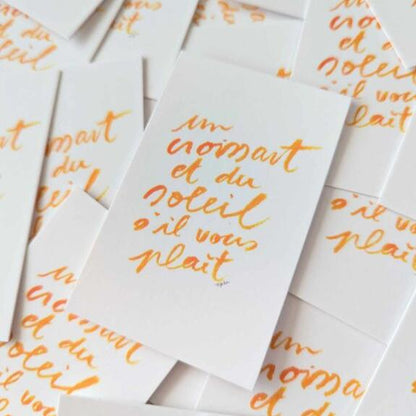 un
croissant
et du
soleil
s'il vous
plaît
et du
soleil
s'il vous
plaît
s'il vous
plaît
un
croissant
et du
soleil
un
croissant
et du
soleil